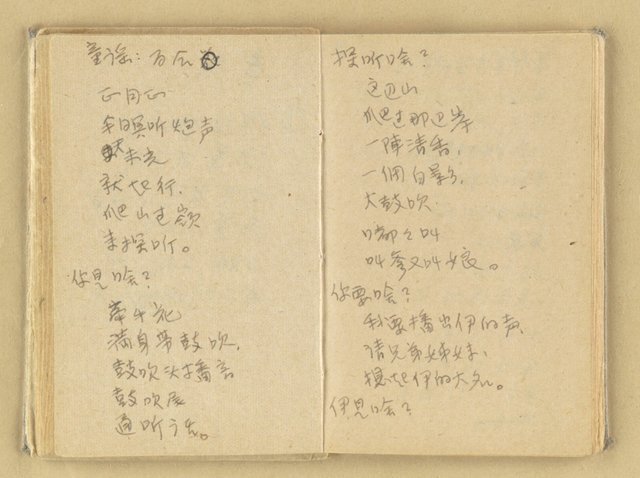 童谣：百合
正月正
半暝听炮声
天未光
就起行
爬山过岭
来探听。
你见啥？
牵牛花
满身带鼓吹，
鼓吹头播音
鼓吹尾
通听话。
探听啥？
这边山
爬过那边岸
一阵清香，
一個白影，
大鼓吹
嘟々叫
叫爹又叫娘。
你要啥？
我要播出伊的声
请兄弟姊妹、
提起伊的大名。
伊是啥？